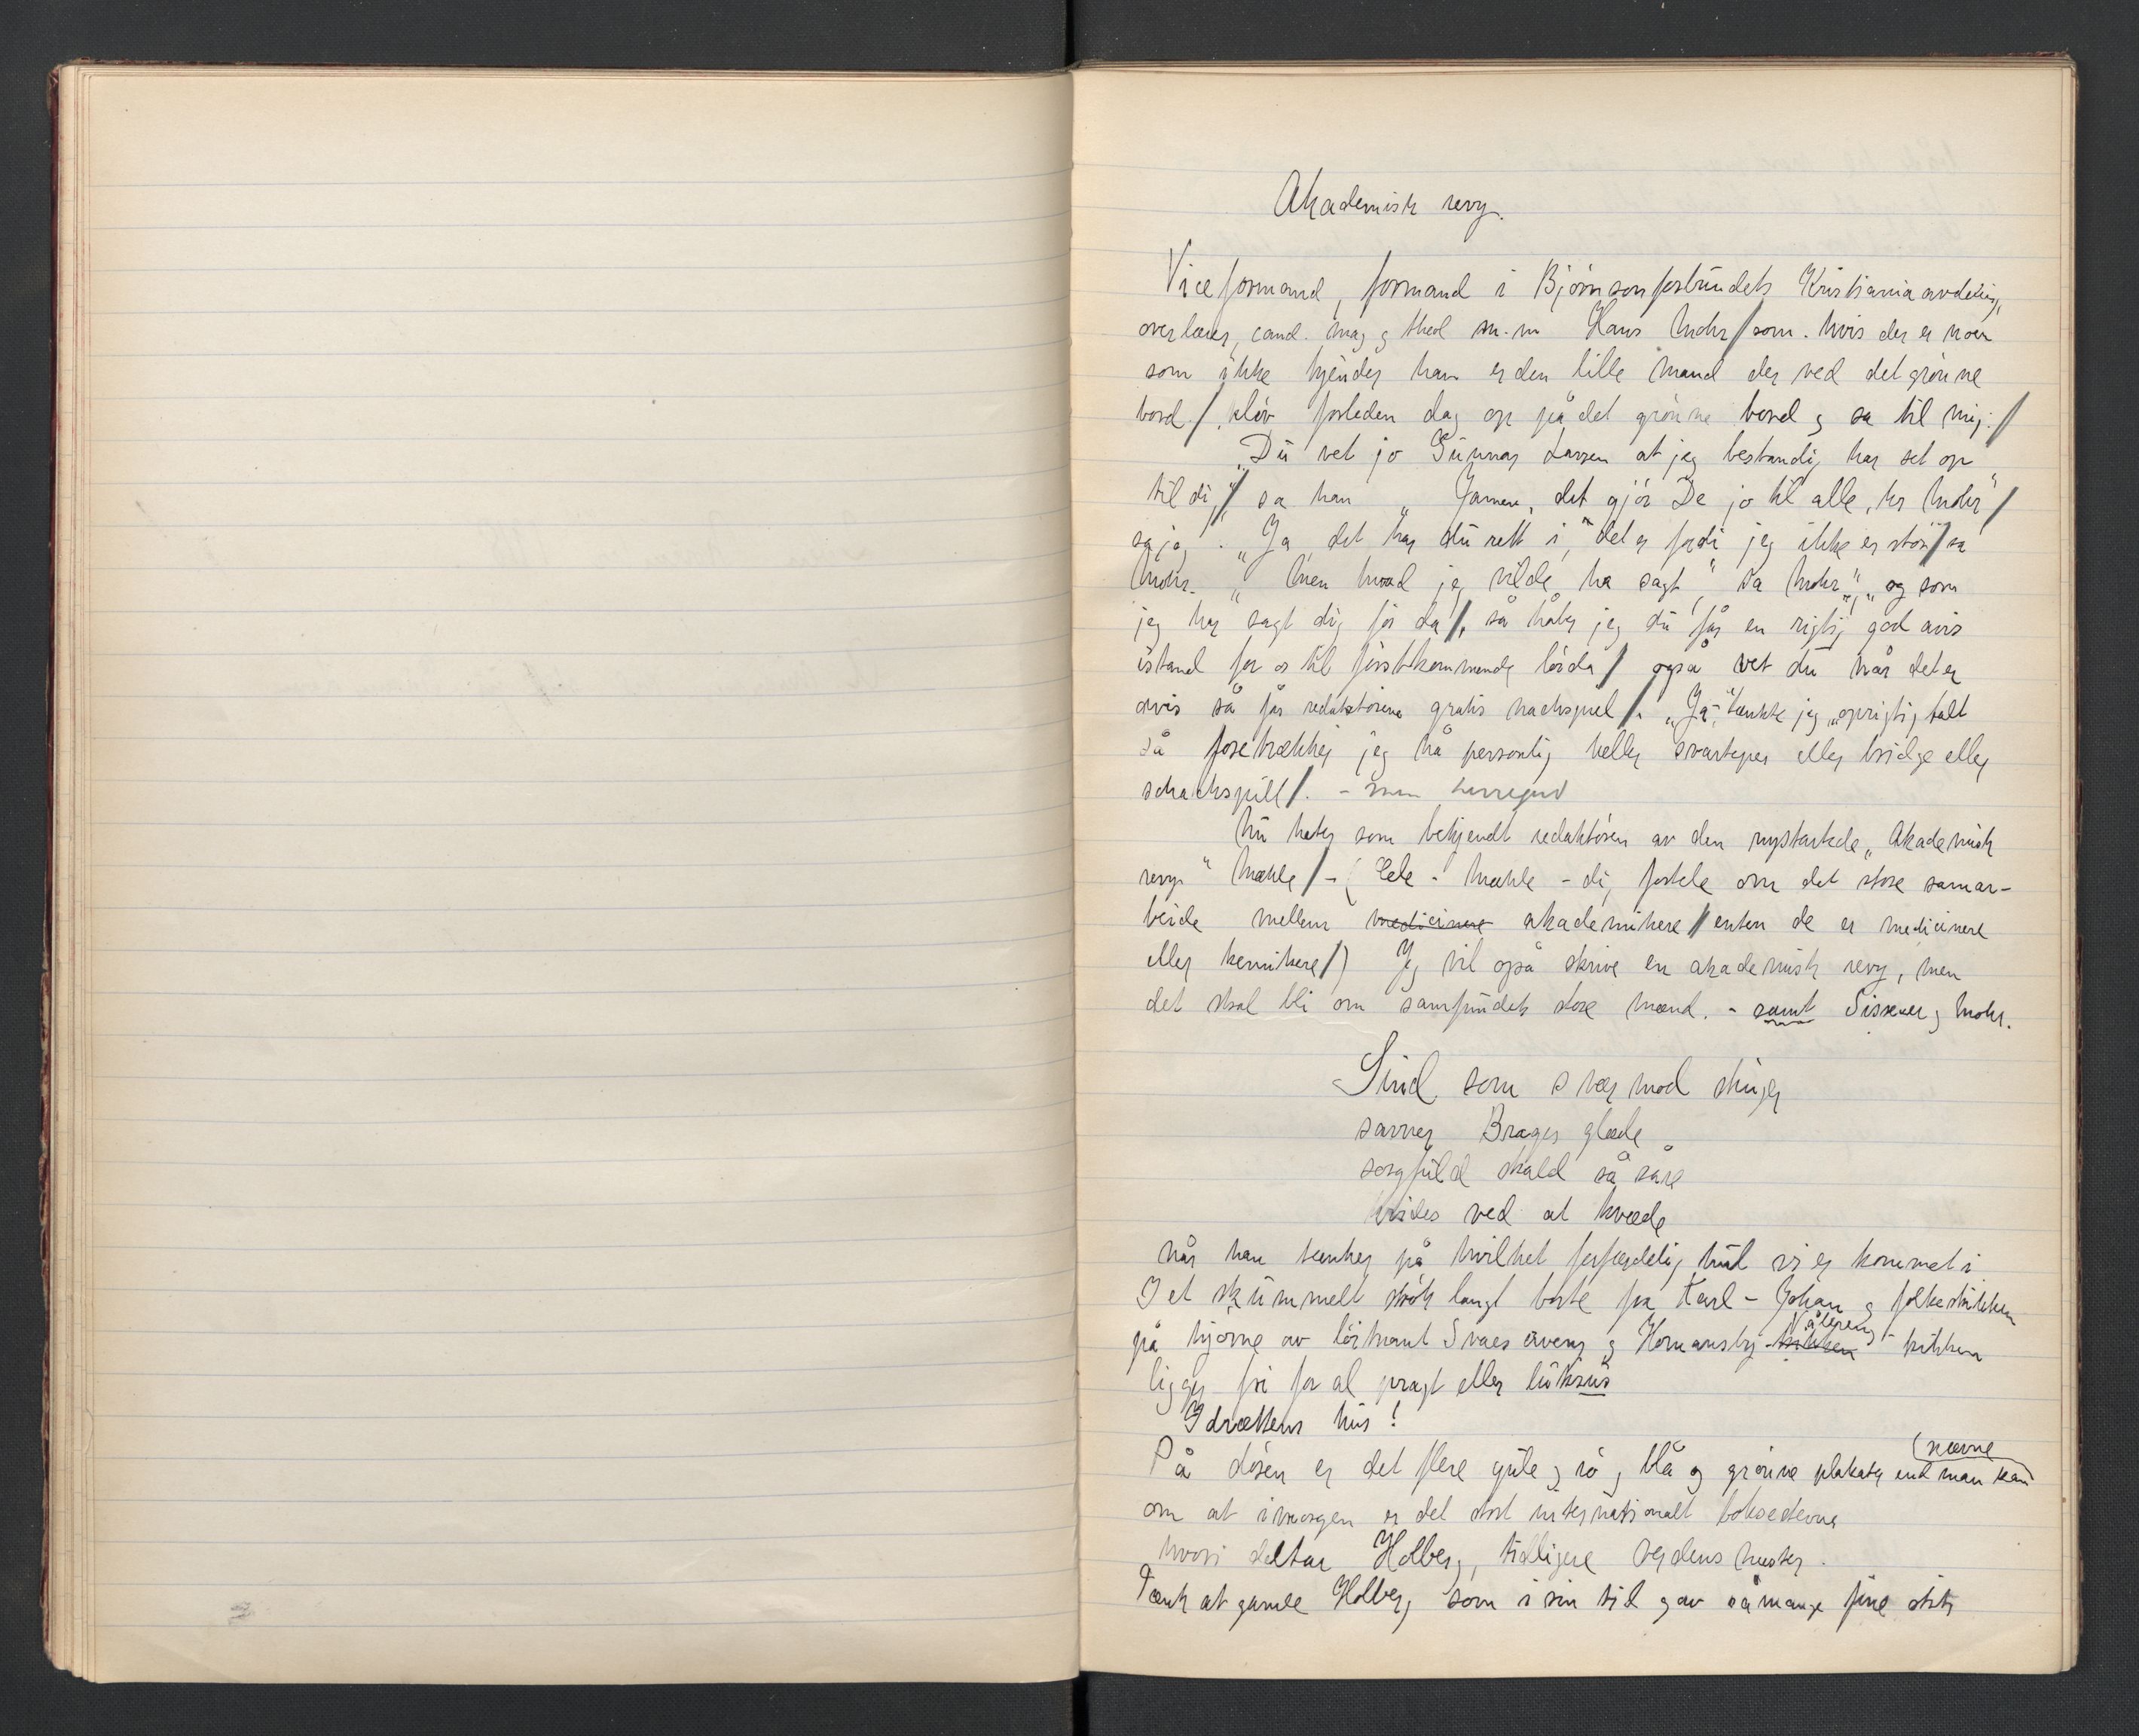 Akademisk revy.
Viceformand, formand i Björnsonforbündets Kristiania avdeling,
overlærer, cand. mag og theol m.m Hans Mohr / som. hvis der er noen
som ikke kjender ham er den lille mand der ved det grönne
bord /, klöv forleden dag op på det grönne bord og sa til mig: /
„Dü vet jo Günnar Larsen at jeg bestandig har set op
til dig," / sa han „Jamen, det gjör De jo til alle, hr Mohr" /
sa jeg. „Ja det har dü rett i, det er fordi jeg ikke er stör" / sa
Mohr. „Men hvad jeg vilde ha sagt," sa Mohr, „og som
jeg har sagt dig för da /, så håber jeg dü får en rigtig god avis
istand for os til förstkommende lörda / også vet dü når det er
avis så får redaktörene gratis nachspiel /. „Ja" tænkte jeg „oprigtig talt
så foretrækker jeg nå personlig heller svarteper eller bridge eller
schachspill /. - men herregud
Nü heter som bekjendt redaktören av den nystartede „Akademisk
revy" Mæhle / - (Ede - Mæhle - dig fortelle om det store samar-
beide mellem medicinere akademikere / enten de er medicinere
eller kemikere /) Jeg vil også skrive en akademisk revy, men
det skal bli om samfündets store mænd. - samt Sissener og Mohr.
Sind som svermod sküger
savner Brages glæde
sorgfüld skald så såre
vrides ved at kvæde
når han tænker på hvilket forferdelig hül vi er kommet i
I et skümmelt strök langt borte fra Karl-Johan og folkeskikken
på hjörne av löitnant Svaes aveny og Homansby-trikken Vålereng-trikken
ligger fri for al pragt eller lüksüs
Idrættens hüs!
På dören er det flere güle og rö, blå og grönne plakater end man kan nævne
om at imorgen er det stort internationalt boksestevne
hvori deltar Holberg, tidligere verdensmester.
Tænk at gamle Holberg som i sin tid gav så mange fine stits